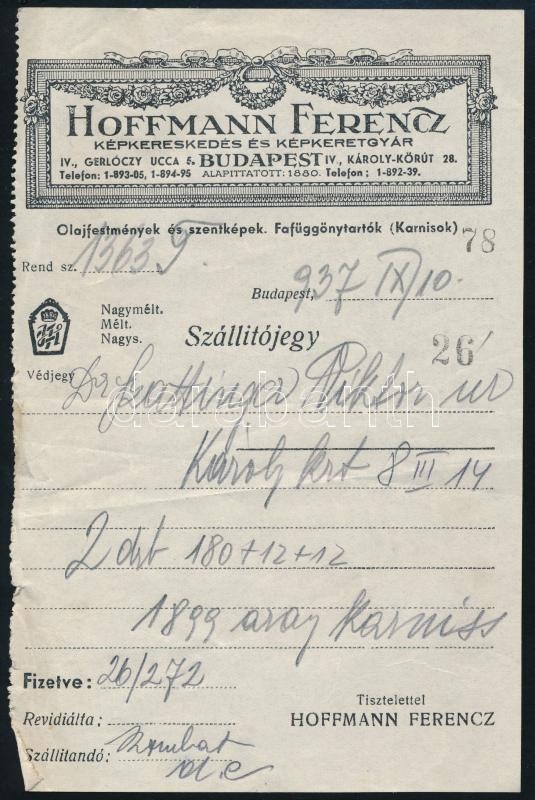 HOFFMANN FERENCZ
KÉPKERESKEDÉS ÉS KÉPKERETGYÁR
IV., GERLÓCZY UCCA 5. BUDAPEST IV., KÁROLY-KÖRÚT 28.
Telefon: 1-893-05, 1-894-95 ALAPITTATOTT: 1880. Telefon: 1-892-39.
Olajfestmények és szentképek. Fafüggönytartók (Karnisok)
78
Rend sz. 1363
Budapest, 937 IX/10.
Nagymélt.
Mélt.
Nagys.
Szállitójegy
26
Védjegy
Dr Viktor ur
Károly krt 8 III 14
2 drb 180+12+12
1899 arany karniss
Fizetve: 26/272
Revidiálta:
Szállitandó: Szombat
d.e
Tisztelettel
HOFFMANN FERENCZ
darabanth